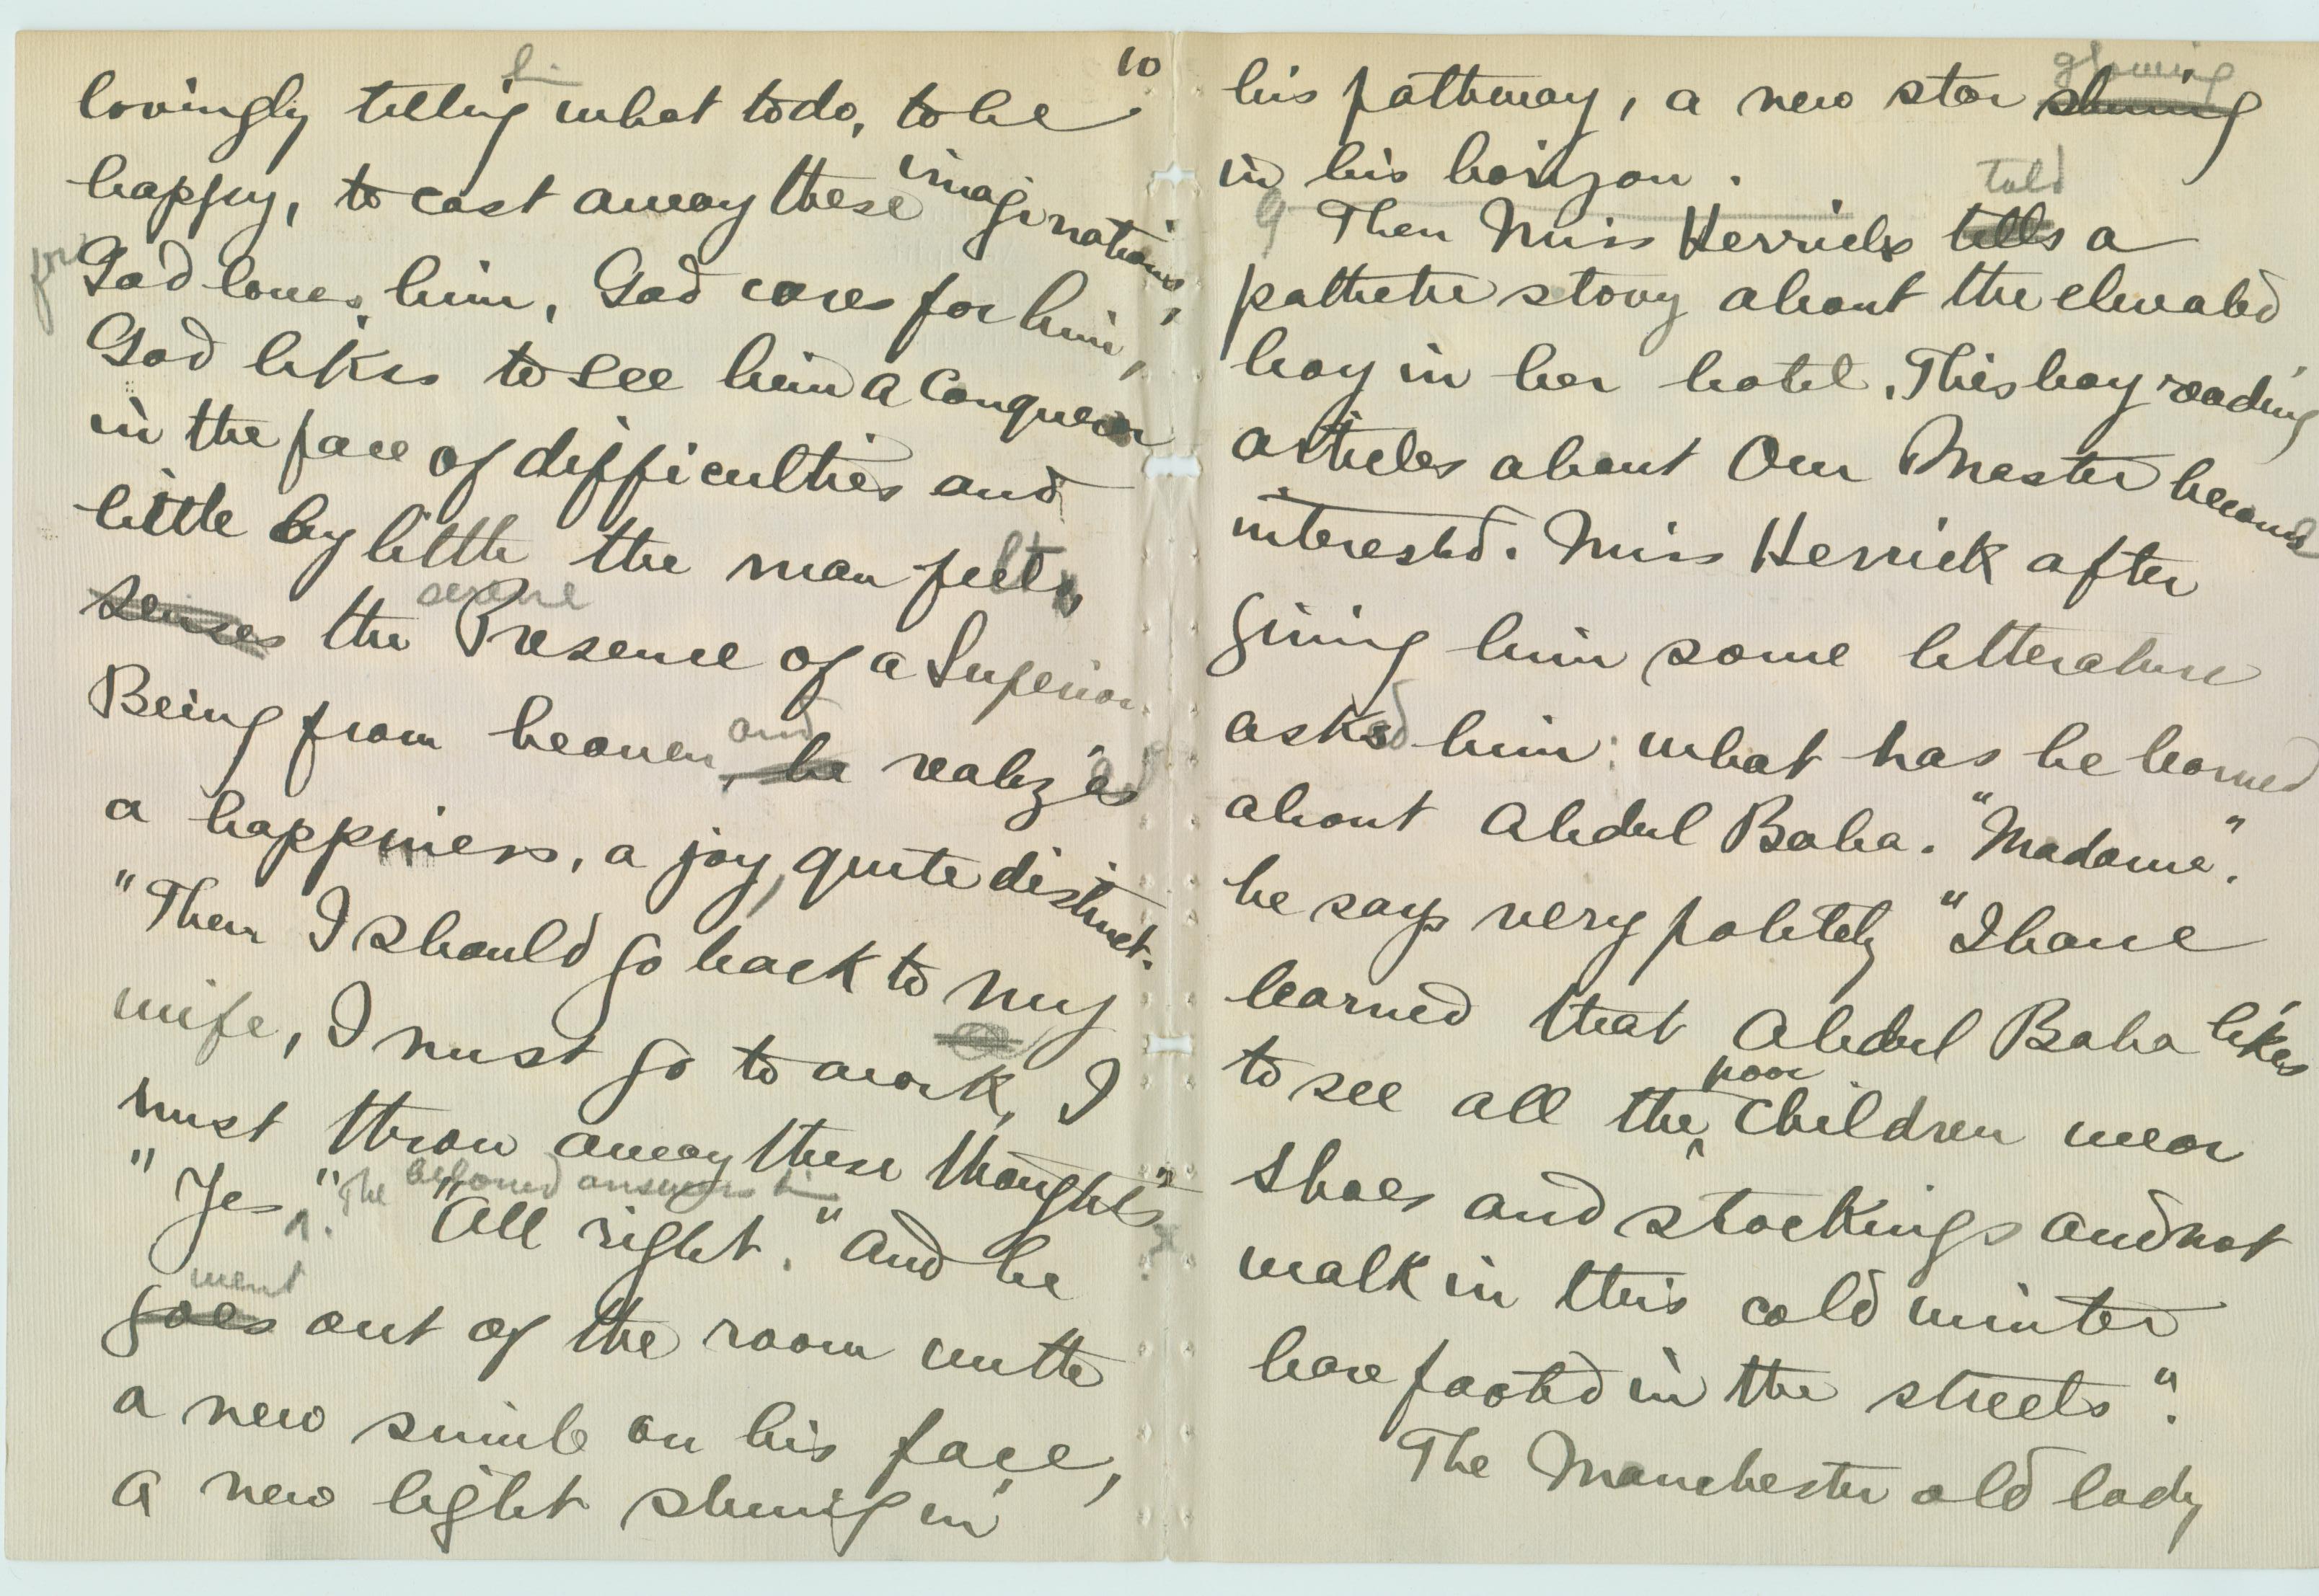 10
lovingly telling him what to do, to be
happy, to cast away these imaginations,
for God loves him, God cares for him,
God likes to see him a Conqueror
in the face of difficulties and
little by little the man felt
senses the serene Presence of a Superior
Being from heaven, and he realized
a happiness, a joy, quite distinct.
"Then I should go back to my
wife, I must go to work, I
must throw away these thoughts"
"Yes". The beloved answers him "All right." And he
went
goes out of the room with
a new smile on his face,
a new light shining in
his pathway, a new star shining gleaming
in his horizon.
9 Then Miss Herrick tells told a
pathetic story about the elevated
boy in her hotel. This boy reading
articles about Our Master became
interested. Miss Herrick after
giving him some litterature
asked him: what has he learned
about Abdul Baha. "Madame".
he says very politely "I have
learned that Abdul Baha likes
to see all the poor children wear
shoes and stockings and not
walk in this cold winter
bare footed in the streets".
The Manchester old lady